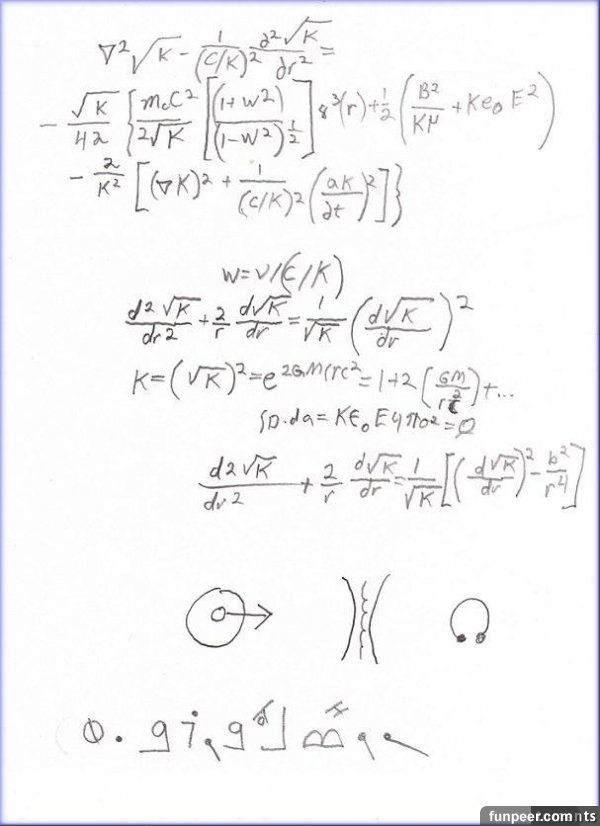 ∇²√K - 1/(C/K)² ∂²√K/∂r² =
- √K/42 { m₀C²/2√K [(1+W²)/(1-W²)^½] 8³(r) + ½ (B²/Kμ + Ke₀E²)
- 2/K² [(∇K)² + 1/(C/K)² (aK/∂t)²] }
W=V/(C/K)
d²√K/dr² + 2/r d√K/dr = 1/√K (d√K/dr)²
K=(√K)²=e^2GM/rc²=1+2(GM/rc²)+...
∫D·da=Kϵ₀E4πo²=Q
d2√K/dr² + 2/r d√K/dr = 1/√K [(d√K/dr)² - b²/r⁴]
funpeer.com